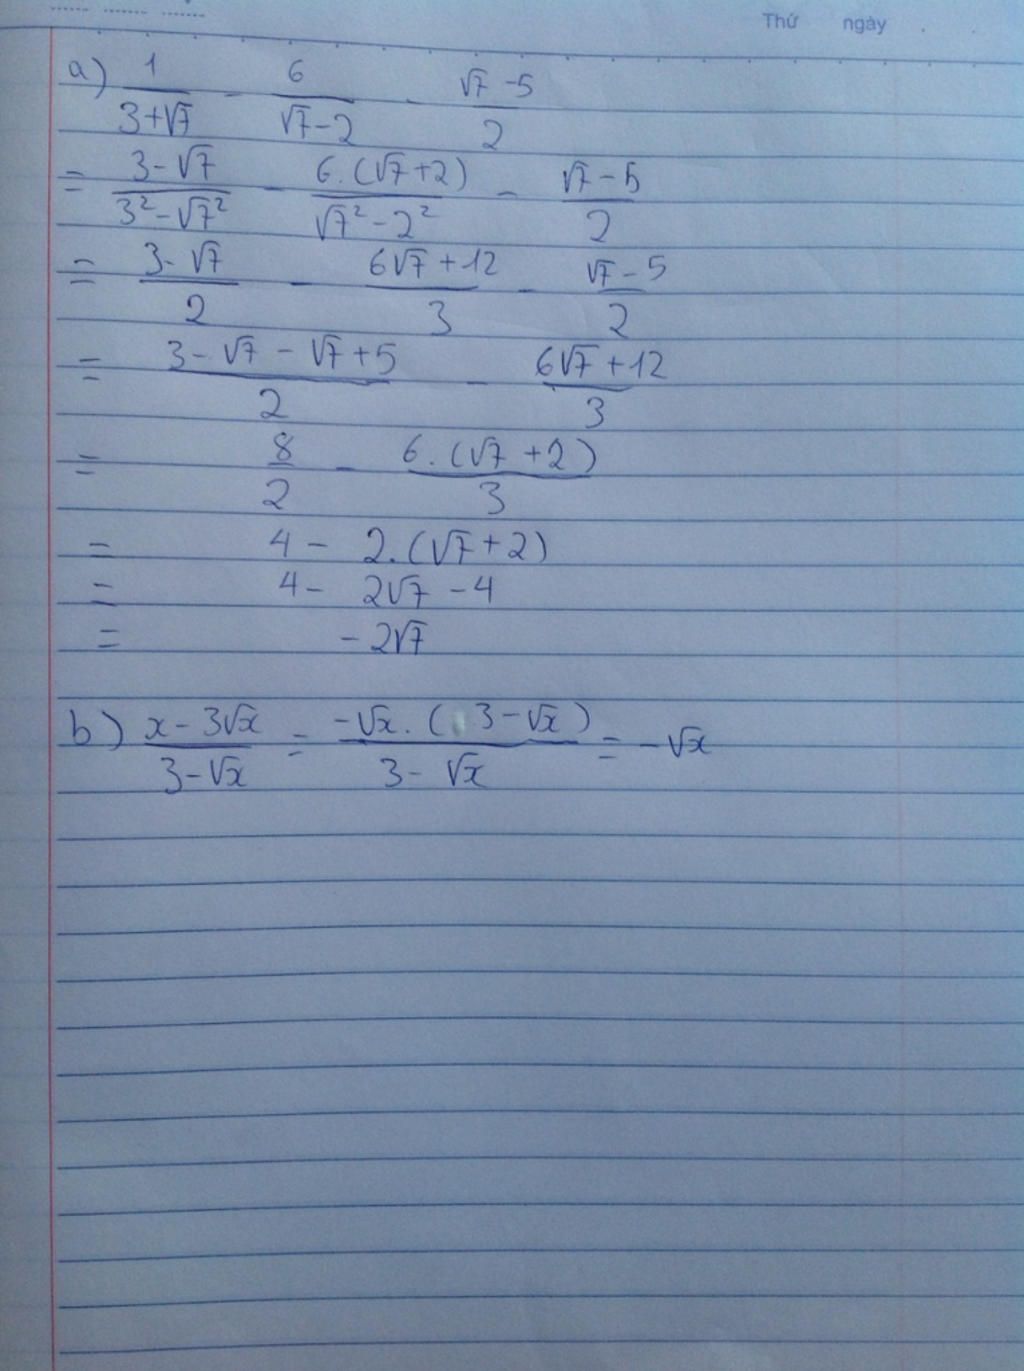 Thứ ngày
a) 1/(3+√7) - 6/(√7-2) - (√7-5)/2
= (3-√7)/(3²-√7²) - 6.(√7+2)/(√7²-2²) - (√7-5)/2
= (3-√7)/2 - (6√7+12)/3 - (√7-5)/2
= (3-√7-√7+5)/2 - (6√7+12)/3
= 8/2 - 6.(√7+2)/3
= 4 - 2.(√7+2)
= 4 - 2√7 - 4
= -2√7
b) (x-3√x)/(3-√x) = -√x.(3-√x)/(3-√x) = -√x